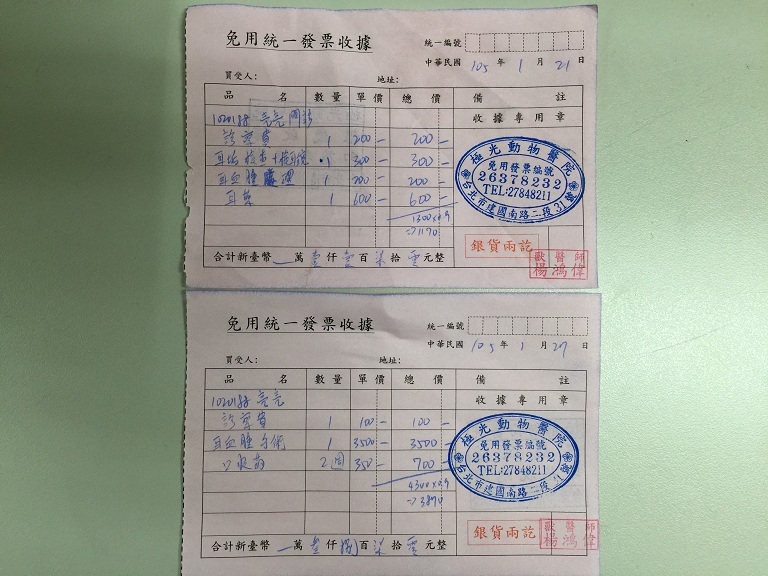 免用統一發票收據
統一編號
中華民國 105 年 1 月 21 日
買受人： 地址：
品名 數量 單價 總價 備註
收據專用章
1020188 亮亮
診察費 1 200- 200-
1 300- 300-
耳血腫處理 1 200- 200-
耳藥 1 600- 600-
1300x0.9
⇒1170
極光動物醫院
免用發票編號
26378232
TEL:27848211
台北市建國南路二段31號
銀貨兩訖
獸醫師
楊鴻偉
合計新臺幣 萬壹仟壹百柒拾零元整
免用統一發票收據
統一編號
中華民國 105 年 1 月 27 日
買受人： 地址：
品名 數量 單價 總價 備註
收據專用章
1020188 亮亮
診察費 1 100- 100-
耳血腫手術 1 3500- 3500-
口服藥 2週 350- 700-
4300x0.9
⇒3870
極光動物醫院
免用發票編號
26378232
TEL:27848211
台北市建國南路二段31號
銀貨兩訖
獸醫師
楊鴻偉
合計新臺幣 萬叁仟捌百柒拾零元整